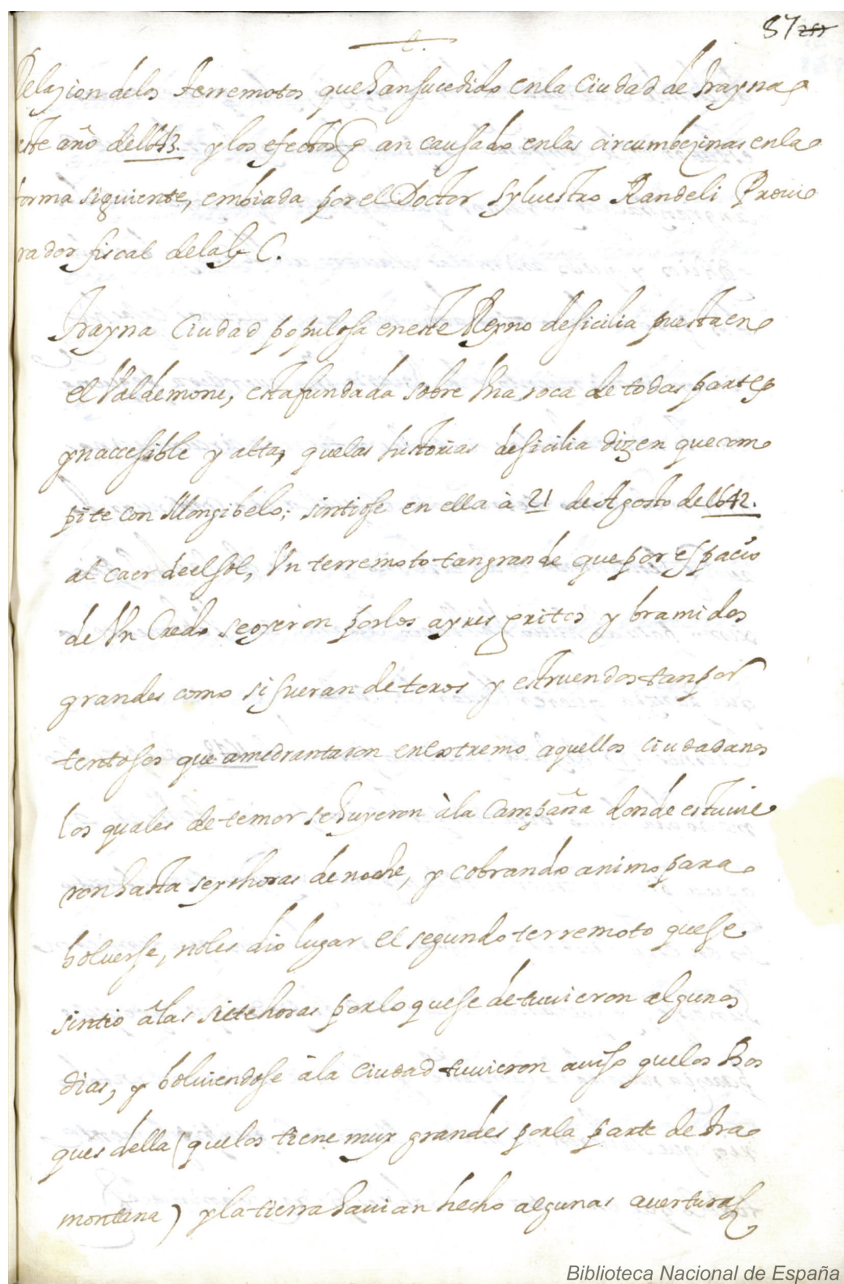 87 257
Relazion delos terremotos que han sucedido en la Ciudad de Trayna
este año de 1643. y los efectos q̃ an causado en las circumbezinas en la
forma siguiente, embiada por el Doctor Sylvestro Randeli Procu
rador fiscal de la g. C.
Trayna Ciudad populosa en este Reyno de sicilia puesta en
el Valdemone, esta fundada sobre Una roca de todas partes
ynaccessible y alta, que las historias de sicilia dizen que com
pite con Mongibelo; sintiose en ella à 21 de Agosto de 1642.
al caer de el sol, Un terremoto tan grande que por espacio
de Un Credo se oyeron por los ayres gritos y bramidos
grandes como si fueran de toros y estruendos tan por
tentosos que amedrantaron en extremo aquellos ciudadanos
los quales de temor se huyeron à la Campaña donde estuvie
ron hasta seys horas de noche, y cobrando animo para
bolverse, no les dio lugar el segundo terremoto que se
sintio à las siete horas por lo que se detuvieron algunos
dias, y bolviendose à la Ciudad tuvieron aviso que los Bos
ques della (que los tiene muy grandes por la parte de Tra
montana) y la tierra havian hecho algunas averturas
Biblioteca Nacional de España